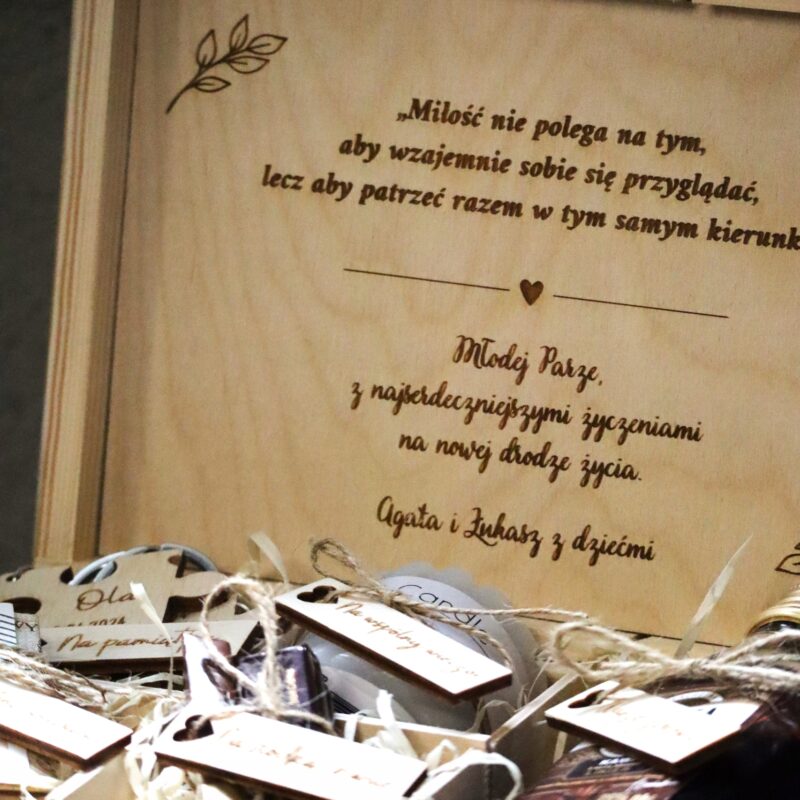 „Miłość nie polega na tym,
aby wzajemnie sobie się przyglądać,
lecz aby patrzeć razem w tym samym kierunk
Młodej Parze,
z najserdeczniejszymi życzeniami
na nowej drodze życia.
Agata i Łukasz z dziećmi
Ola
2024
Na pamiątk
Candle
Na wspólny